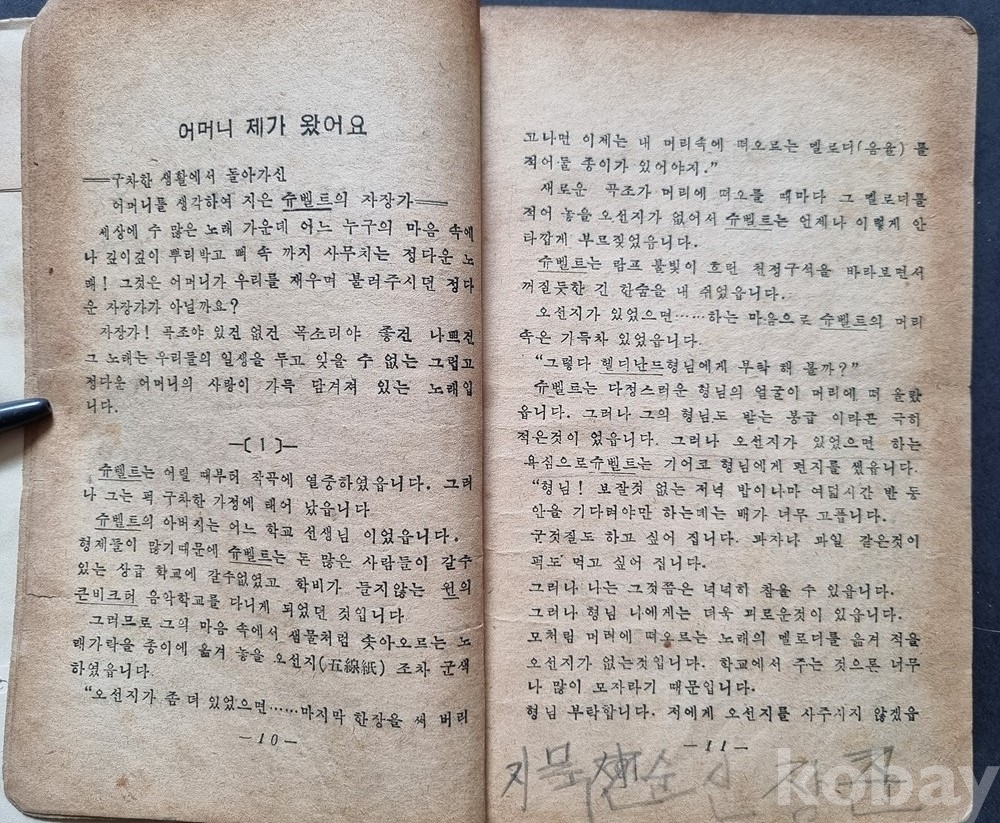 어머니 제가 왔어요
──구차한 생활에서 돌아가신
어머니를 생각하여 지은 슈벨트의 자장가──
세상에 수 많은 노래 가운데 어느 누구의 마음 속에
나 깊이깊이 뿌리박고 뼈 속 까지 사무치는 정다운 노
래! 그것은 어머니가 우리를 재우며 불러주시던 정다
운 자장가가 아닐까요?
자장가! 곡조야 있건 없건 목소리야 좋건 나쁘건
그 노래는 우리들의 일생을 두고 잊을 수 없는 그립고
정다운 어머니의 사랑이 가득 담겨져 있는 노래입
니다.
—〔1〕—
슈벨트는 어릴 때부터 작곡에 열중하였읍니다. 그러
나 그는 퍽 구차한 가정에 태어 났읍니다
슈벨트의 아버지는 어느 학교 선생님 이었읍니다.
형제들이 많기때문에 슈벨트는 돈 많은 사람들이 갈수
있는 상급 학교에 갈수없었고 학비가 들지않는 원의
콘비크터 음악학교를 다니게 되었던 것입니다
그러므로 그의 마음 속에서 샘물처럼 솟아오르는 노
래가락을 종이에 옮겨 놓을 오선지(五線紙) 조차 군색
하였읍니다.
“오선지가 좀 더 있었으면……마지막 한장을 써 버리
—10—
고나면 이제는 내 머리속에 떠오르는 멜로디(음율)를
적어둘 종이가 있어야지.”
새로운 곡조가 머리에 떠오를 때마다 그 멜로디를
적어 놓을 오선지가 없어서 슈벨트는 언제나 이렇게 안
타깝게 부르짖었읍니다.
슈벨트는 람프 불빛이 흐린 천정구석을 바라보면서
꺼질듯한 긴 한숨을 내 쉬었읍니다.
오선지가 있었으면……하는 마음으로 슈벨트의 머리
속은 가득차 있었읍니다.
“그렇다 헬디난드형님에게 부탁 해 볼까?”
슈벨트는 다정스러운 형님의 얼굴이 머리에 떠 올랐
읍니다. 그러나 그의 형님도 받는 봉급 이라곤 극히
적은것이 였읍니다. 그러나 오선지가 있었으면 하는
욕심으로슈벨트는 기어코 형님에게 편지를 썼읍니다.
“형님! 보잘것 없는 저녁 밥이나마 여덟시간 반 동
안을 기다려야만 하는데는 배가 너무 고픕니다.
군것질도 하고 싶어 집니다. 과자나 파일 같은것이
퍽도 먹고 싶어 집니다.
그러나 나는 그것쯤은 넉넉히 참을 수 있읍니다.
그러나 형님 나에게는 더욱 괴로운것이 있읍니다.
모처럼 머리에 떠오르는 노래의 멜로디를 옮겨 적을
오선지가 없는것입니다. 학교에서 주는 것으론 너무
나 많이 모자라기 때문입니다.
형님 부탁합니다. 저에게 오선지를 사주시지 않겠읍
—11—
kobay